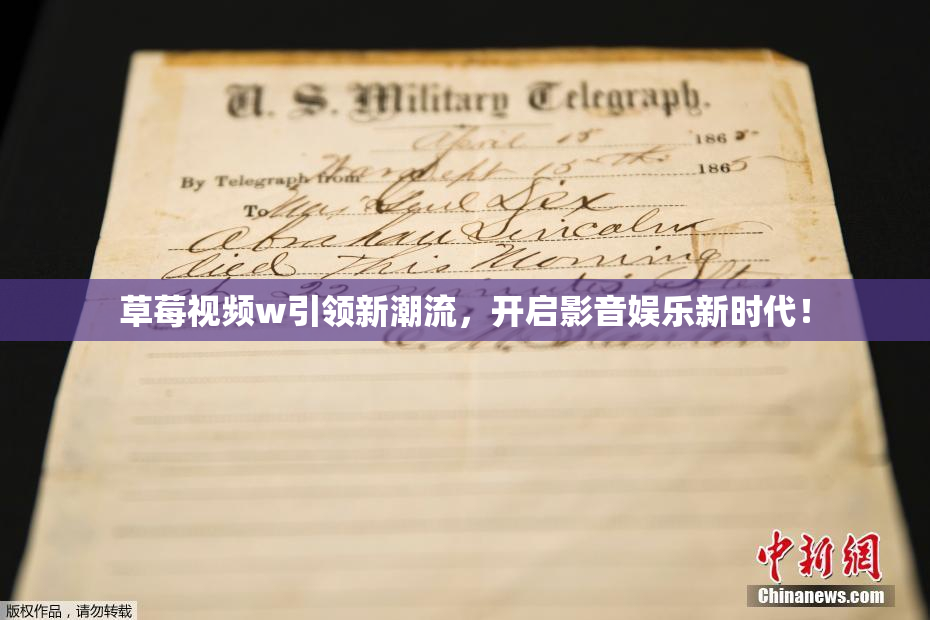 U. S. Military Telegraph.
April 15 1865
By Telegraph from War Dept 15th 1865
To Maj Genl Dix
Abraham Lincoln
died This Morning
at 22 minutes after
草莓视频w引领新潮流，开启影音娱乐新时代！
E. M. Stanton
中新網
Chinanews.com
版权作品，请勿转载